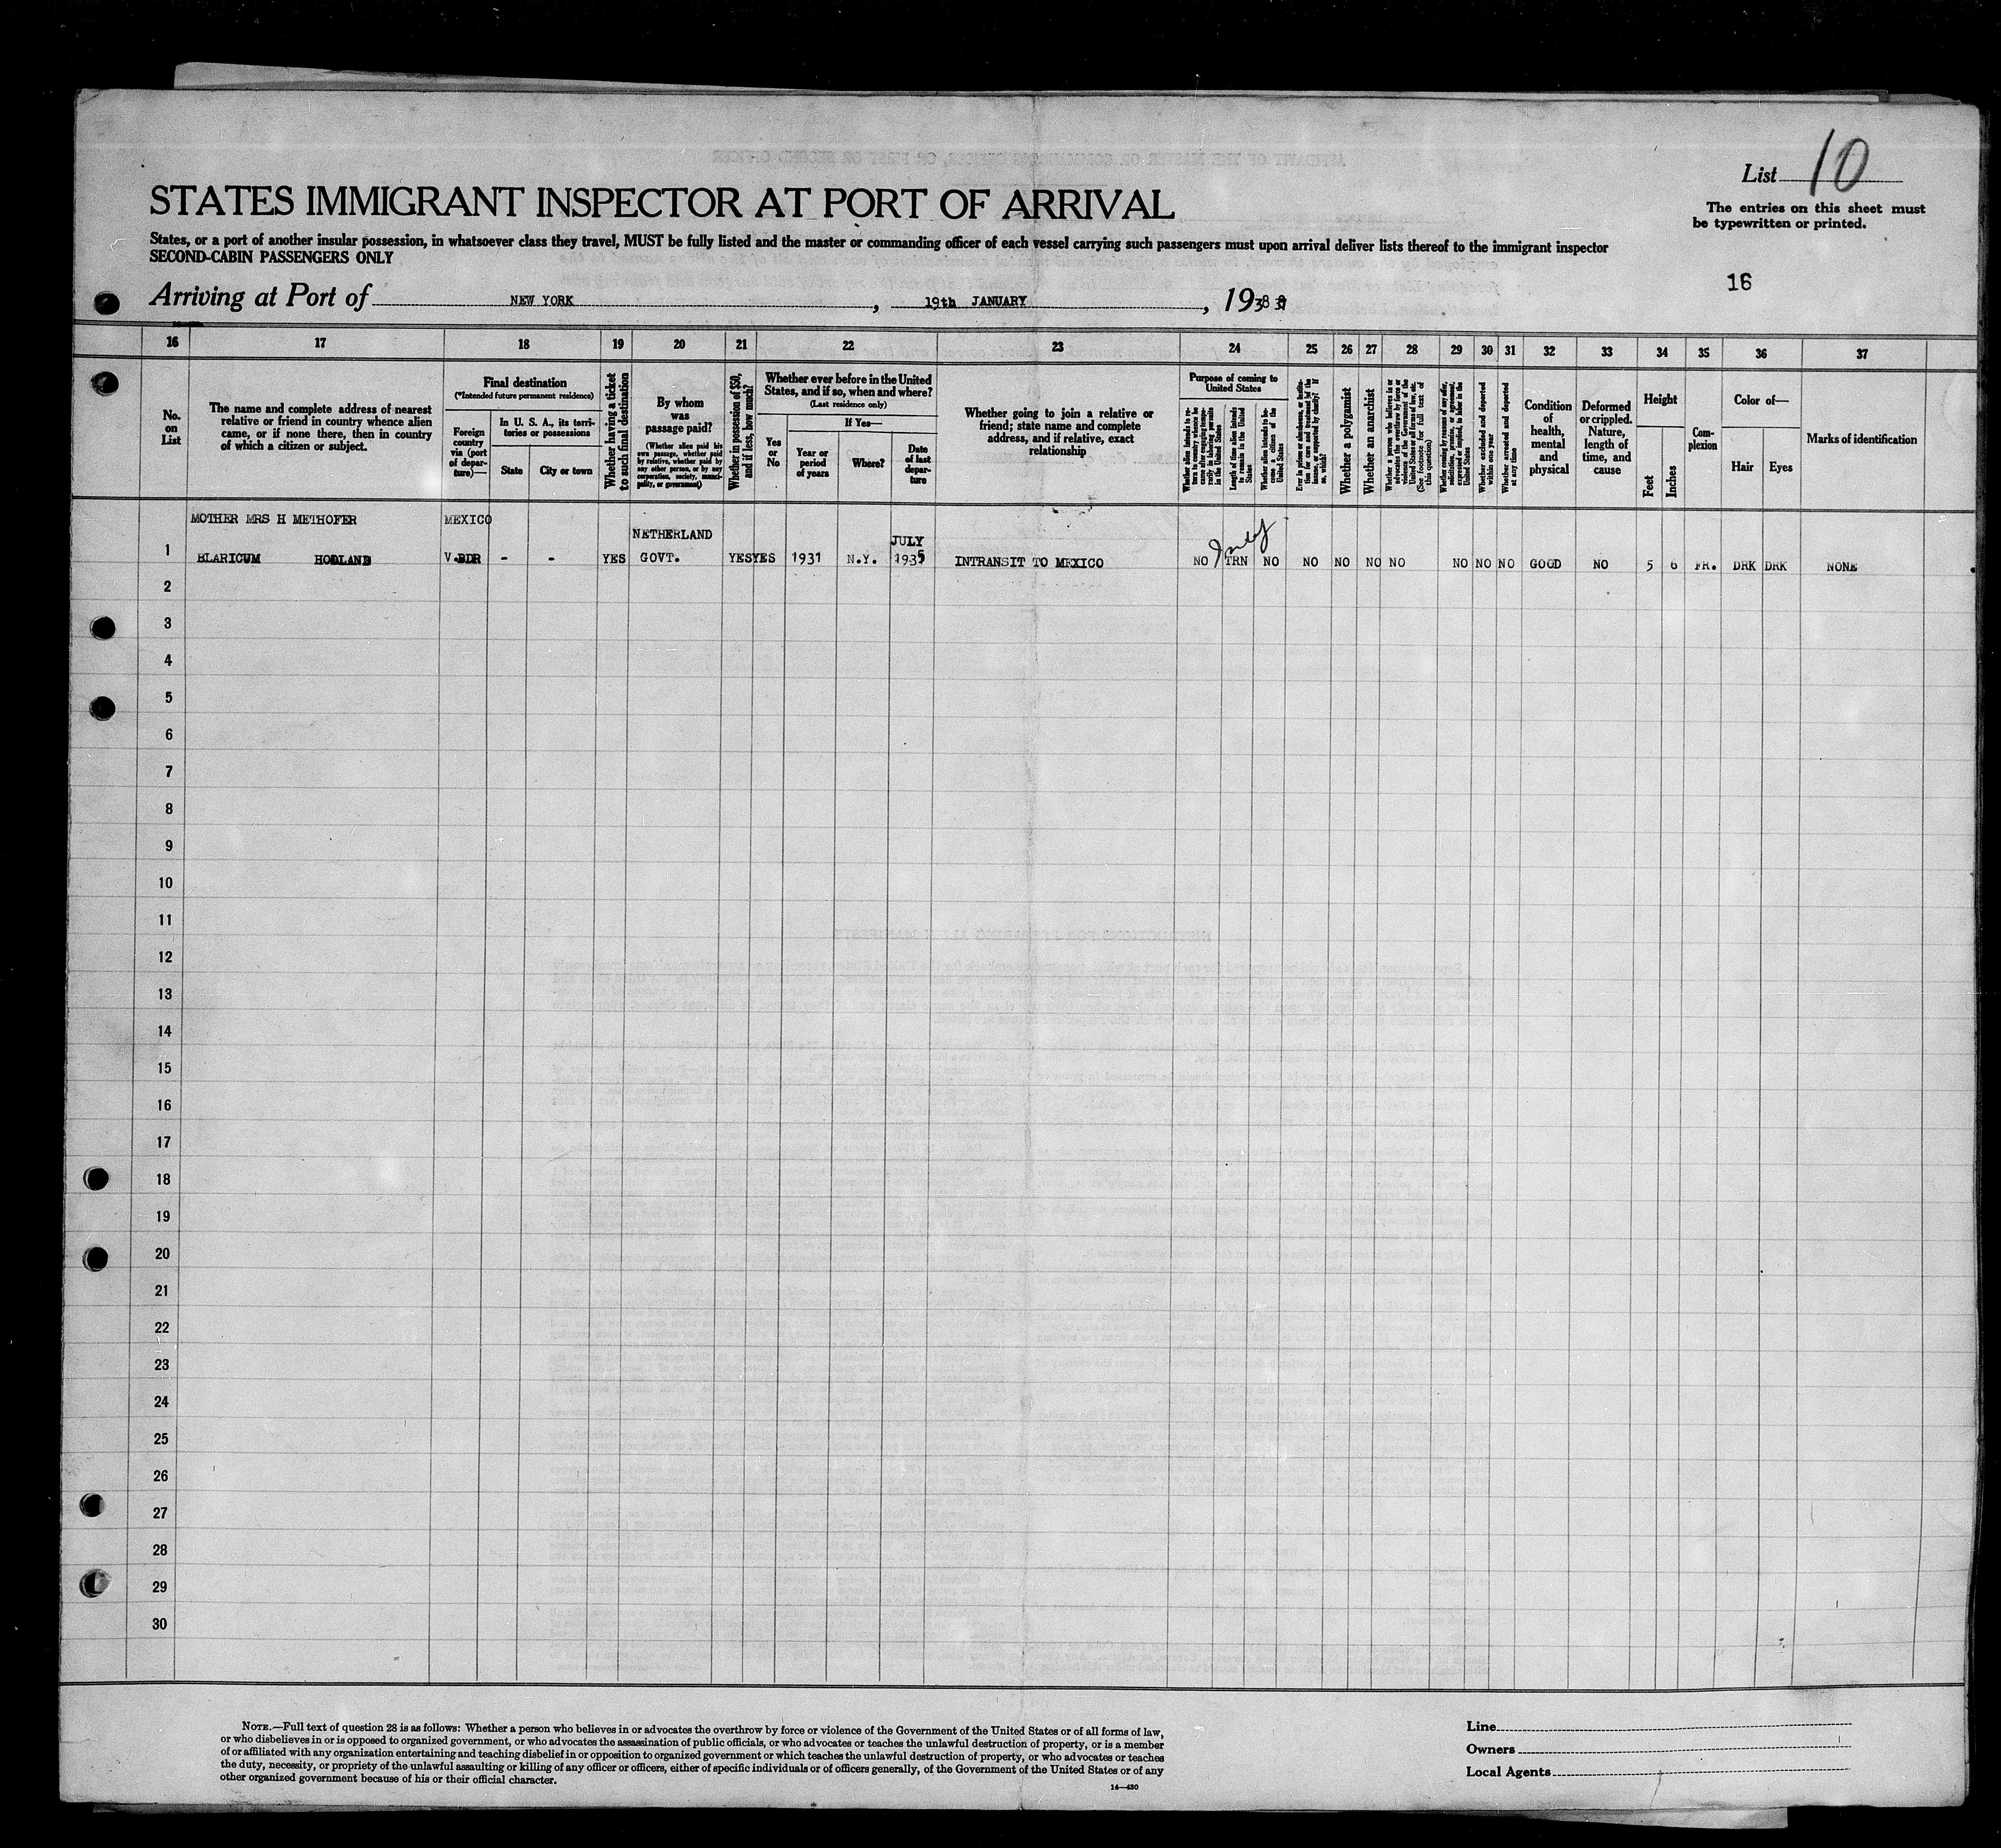 List 10
The entries on this sheet must
be typewritten or printed.
STATES IMMIGRANT INSPECTOR AT PORT OF ARRIVAL
States, or a port of another insular possession, in whatsoever class they travel, MUST be fully listed and the master or commanding officer of each vessel carrying such passengers must upon arrival deliver lists thereof to the immigrant inspector
SECOND-CABIN PASSENGERS ONLY
16
Arriving at Port of NEW YORK, 19th JANUARY, 1938
16 17 18 19 20 21 22 23 24 25 26 27 28 29 30 31 32 33 34 35 36 37
No.
on
List
The name and complete address of nearest
relative or friend in country whence alien
came, or if none there, then in country
of which a citizen or subject.
Final destination
(*Intended future permanent residence)
Foreign
country
via (port
of depar-
ture)—
In U. S. A., its terri-
tories or possessions
State
City or town
Whether having a ticket
to such final destination
By whom
was
passage paid?
(Whether alien paid his
own passage, whether paid
by relative, whether paid by
any other person, or by any
corporation, society, munici-
pality, or government)
Whether in possession of $50,
and if less, how much?
Whether ever before in the United
States, and if so, when and where?
(Last residence only)
Yes
or
No
If Yes—
Year or
period
of years
Where?
Date
of last
depar-
ture
Whether going to join a relative or
friend; state name and complete
address, and if relative, exact
relationship
Purpose of coming to
United States
Whether alien intends to re-
turn to country whence he
came after engaging tempo-
rarily in laboring pursuits
in the United States
Length of time alien intends
to remain in the United
States
Whether alien intends to be-
come a citizen of the
United States
Ever in prison or almshouse, or institu-
tion for care and treatment of the
insane, or supported by charity? If
so, which?
Whether a polygamist
Whether an anarchist
Whether a person who believes in or
advocates the overthrow by force or
violence of the Government of the
United States or all forms of law, etc.
(See footnote for full text of
this question)
Whether coming by reason of any offer,
solicitation, promise, or agreement,
expressed or implied, to labor in the
United States
Whether excluded and deported
within one year
Whether arrested and deported
at any time
Condition
of
health,
mental
and
physical
Deformed
or crippled.
Nature,
length of
time, and
cause
Height
Feet
Inches
Com-
plexion
Color of—
Hair
Eyes
Marks of identification
MOTHER MRS H METHOFER MEXICO
NETHERLAND JULY
1 BLARICUM HOLLAND V.BDR - - YES GOVT. YES YES 1931 N.Y. 1935 INTRANSIT TO MEXICO NO TRN NO NO NO NO NO NO NO NO GOOD NO 5 6 FR. DRK DRK NONE
2
3
4
5
6
7
8
9
10
11
12
13
14
15
16
17
18
19
20
21
22
23
24
25
26
27
28
29
30
NOTE.—Full text of question 28 is as follows: Whether a person who believes in or advocates the overthrow by force or violence of the Government of the United States or of all forms of law,
or who disbelieves in or is opposed to organized government, or who advocates the assassination of public officials, or who advocates or teaches the unlawful destruction of property, or is a member
of or affiliated with any organization entertaining and teaching disbelief in or opposition to organized government or which teaches the unlawful destruction of property, or who advocates or teaches
the duty, necessity, or propriety of the unlawful assaulting or killing of any officer or officers, either of specific individuals or of officers generally, of the Government of the United States or of any
other organized government because of his or their official character.
14—430
Line
Owners
Local Agents